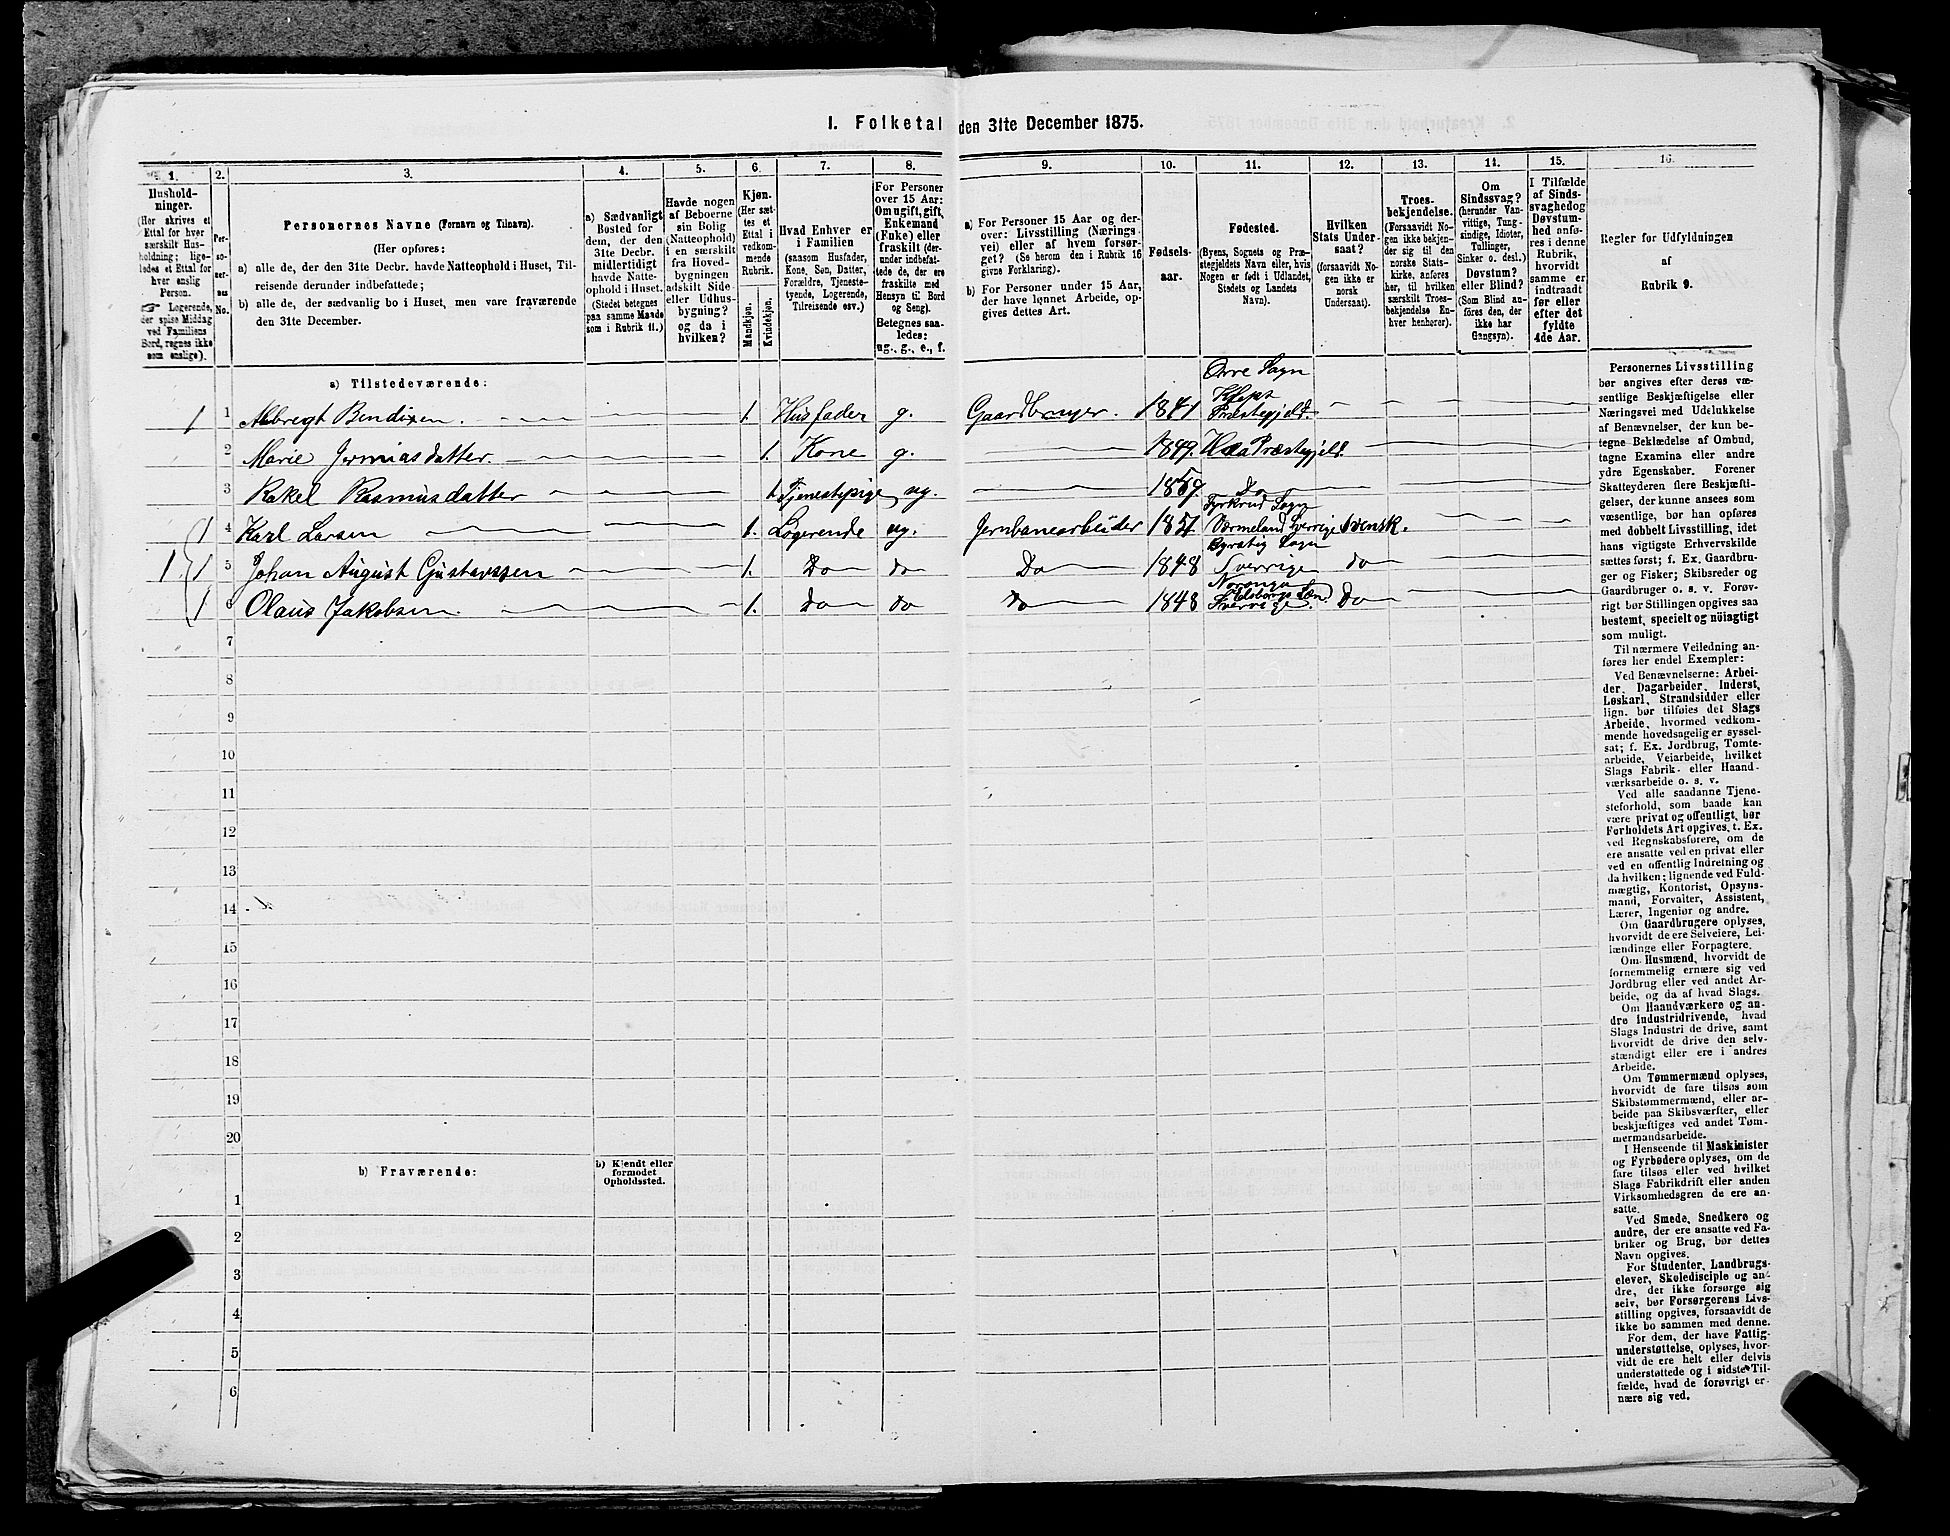 I. Folketal den 31te December 1875.
1. 2. 3. 4. 5. 6. 7. 8. 9. 10. 11. 12. 13. 14. 15. 16.
Hushold-
ninger.
(Her skrives et
Ettal for hver
særskilt Hus-
holdning; lige-
ledes et Ettal for
hver enslig
Person.
Logerende,
der spise Middag
ved Familiens
Bord, regnes ikke
som enslige).
Per-
so-
ner-
nes
No.
Personernes Navne (Fornavn og Tilnavn).
(Her opføres:
a) alle de, der den 31te Decbr. havde Natteophold i Huset, Til-
reisende derunder indbefattede;
b) alle de, der sædvanlig bo i Huset, men vare fraværende
den 31te December.
a) Sædvanligt
Bosted for
dem, der den
31te Decbr.
midlertidigt
havde Natte-
ophold i Huset.
(Stedet betegnes
paa samme Maade
som i Rubrik 11.)
Havde nogen
af Beboerne
sin Bolig
(Natteophold)
i en særskilt
fra Hoved-
bygningen
adskilt Side-
eller Udhus-
bygning?
og da i
hvilken?
Kjøn.
(Her sæt-
tes et
Ettal i
vedkom-
mende
Rubrik.
Mandkjøn.
Kvindekjøn.
Hvad Enhver er
i Familien
(saasom Husfader,
Kone, Søn, Datter,
Forældre, Tjeneste-
tyende, Logerende,
Tilreisende osv.)
For Personer
over 15 Aar:
Om ugift, gift,
Enkemand
(Enke) eller
fraskilt (der-
under indbefat-
tede de, der ere
fraskilte med
Hensyn til Bord
og Seng).
Betegnes saa-
ledes:
ug., g., e., f.
a) For Personer 15 Aar og der-
over: Livsstilling (Nærings-
vei) eller af hvem forsør-
get? (Se herom den i Rubrik 16
givne Forklaring).
b) For Personer under 15 Aar,
der have lønnet Arbeide, op-
gives dettes Art.
Fødsels-
aar.
Fødested.
(Byens, Sognets og Præ-
stegjeldets Navn eller, hvis
Nogen er født i Udlandet,
Stedets og Landets
Navn).
Hvilken
Stats Under-
saat?
(forsaavidt No-
gen ikke er
norsk
Undersaat).
Troes-
bekjendelse.
(Forsaavidt No-
gen ikke bekjen-
der sig til den
norske Stats-
kirke, anføres
her, til hvilken
særskilt Troes-
bekjendelse En-
hver henhører).
Om
Sindssvag?
(herunder Van-
vittige, Tung-
sindige, Idioter,
Tullinger,
Sinker o. desl.)
Døvstum?
eller Blind?
(Som Blind an-
føres den, der
ikke har
Gangsyn).
I Tilfælde
af Sinds-
svaghed og
Døvstum-
hed anfø-
res i denne
Rubrik,
hvorvidt
samme er
indtraadt
før eller
efter det
fyldte
4de Aar.
Regler for Udfyldningen
af
Rubrik 9.
a) Tilstedeværende:
1 1 Albregt Bendixen. 1. Husfader g. Gaardbruger. 1841 Orre Sogn Kleps Præstegjeld.
2 Marie Jermiasdatter. 1. Kone g. 1849. Haa Præstegjeld.
3 Rakel Rasmusdatter 1. Tjenestepige ug. 1859. Do
1 4 Karl Larsen 1. Logerende ug. Jernbanearbeider 1851. Sogn Værmeland Sverrige Svensk.
1 1 5 Johan August Gustavssen 1. Do do Do 1848 Sogn Sverrige do
1 6 Olaus Jakobsen. 1. Do do Do 1848 Sverrige. Do
7
8
9
10
11
12
13
14
15
16
17
18
19
20
b) Fraværende:
b) Kjendt eller
formodet
Opholdssted.
1
2
3
4
5
6
Personernes Livsstilling
bør angives efter deres væ-
sentlige Beskjæftigelse eller
Næringsvei med Udelukkelse
af Benævnelser, der kun be-
tegne Beklædelse af Ombud,
tagne Examina eller andre
ydre Egenskaber. Forener
Skatteyderen flere Beskjæfti-
gelser, der kunne ansees som
væsentlige, bør han opføres
med dobbelt Livsstilling, idet
hans vigtigste Erhvervskilde
sættes først; f. Ex. Gaardbru-
ger og Fisker; Skibsreder og
Gaardbruger o. s. v. Forøv-
rigt bør Stillingen opgives saa
bestemt, specielt og nøiagtigt
som muligt.
Til nærmere Veiledning an-
føres her endel Exempler:
Ved Benævnelserne: Arbei-
der, Dagarbeider, Inderst,
Løskarl, Strandsidder eller
lign. bør tilføies det Slags
Arbeide, hvormed vedkom-
mende hovedsagelig er syssel-
sat; f. Ex. Jordbrug, Tomte-
arbeide, Veiarbeide, hvilket
Slags Fabrik- eller Haand-
værksarbeide o. s. v.
Ved alle saadanne Tjene-
steforhold, som baade kan
være privat og offentligt, bør
Forholdets Art opgives, t. Ex.
ved Regnskabsførere, om de
ere ansatte ved en privat eller
ved en offentlig Indretning og
da hvilken; lignende ved Fuld-
mægtig, Kontorist, Opsyns-
mand, Forvalter, Assistent,
Lærer, Ingeniør og andre.
Om Gaardbrugere oplyses,
hvorvidt de ere Selveiere, Lei-
lændinge eller Forpagtere.
Om Husmænd, hvorvidt de
fornemmelig ernære sig ved
Jordbrug eller ved andet Ar-
beide, og da af hvad Slags.
Om Haandværkere og an-
dre Industridrivende, hvad
Slags Industri de drive, samt
hvorvidt de drive den selv-
stændigt eller ere i andres
Arbeide.
Om Tømmermænd oplyses,
hvorvidt de fare tilsøs som
Skibstømmermænd, eller ar-
beide paa Skibsværfter, eller
beskjæftiges ved andet Tøm-
mermandsarbeide.
I Henseende til Maskinister
og Fyrbødere oplyses, om de
fare tilsøs eller ved hvilket
Slags Fabrikdrift eller anden
Virksomhedsgren de ere an-
satte.
Ved Smede, Snedkere og
andre, der ere ansatte ved Fa-
briker og Brug, bør dettes
Navn opgives.
For Studenter, Landbrugs-
elever, Skoledisciple og an-
dre, der ikke forsørge sig
selv, bør Forsørgerens Livs-
stilling opgives, forsaavidt de
ikke bo sammen med denne.
For dem, der have Fattig-
understøttelse, oplyses, hvor-
vidt de ere helt eller delvis
understøttede og i sidste Til-
fælde, hvad de forøvrigt er-
nære sig ved.